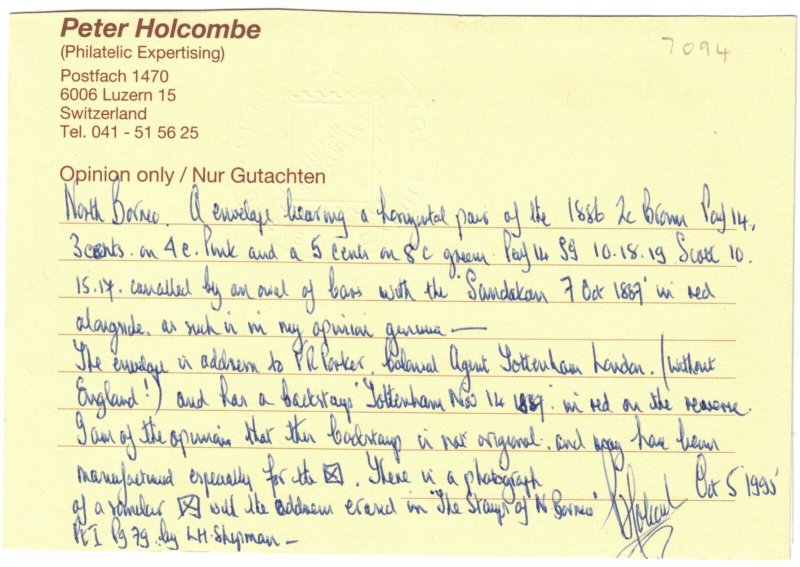 Peter Holcombe
7094
(Philatelic Expertising)
Postfach 1470
6006 Luzern 15
Switzerland
Tel. 041 - 51 56 25
Opinion only / Nur Gutachten
North Borneo. A envelope bearing a horizontal pair of the 1886 2c Brown Perf 14,
3 cents on 4 c. Pink and a 5 cents on 8 c green Perf 14 SG 10.18.19 Scott 10.
15.17. cancelled by an oval of bars with the "Sandakan 7 Oct 1887" in red
alongside. as such is in my opinion genuine —
The envelope is address to Parker, Colonial Agent Tottenham London. (without
England!) and has a backstamp "Tottenham Nov 14 1887" in red on the reverse.
I am of the opinion that this backstamp is not original and may have been
manufactured especially for the ⊠. There is a photograph
of a similar ⊠ with the address erased in "The Stamps of N Borneo"
Pt I Pg 79. by LH. Shipman —
Oct 5 1995